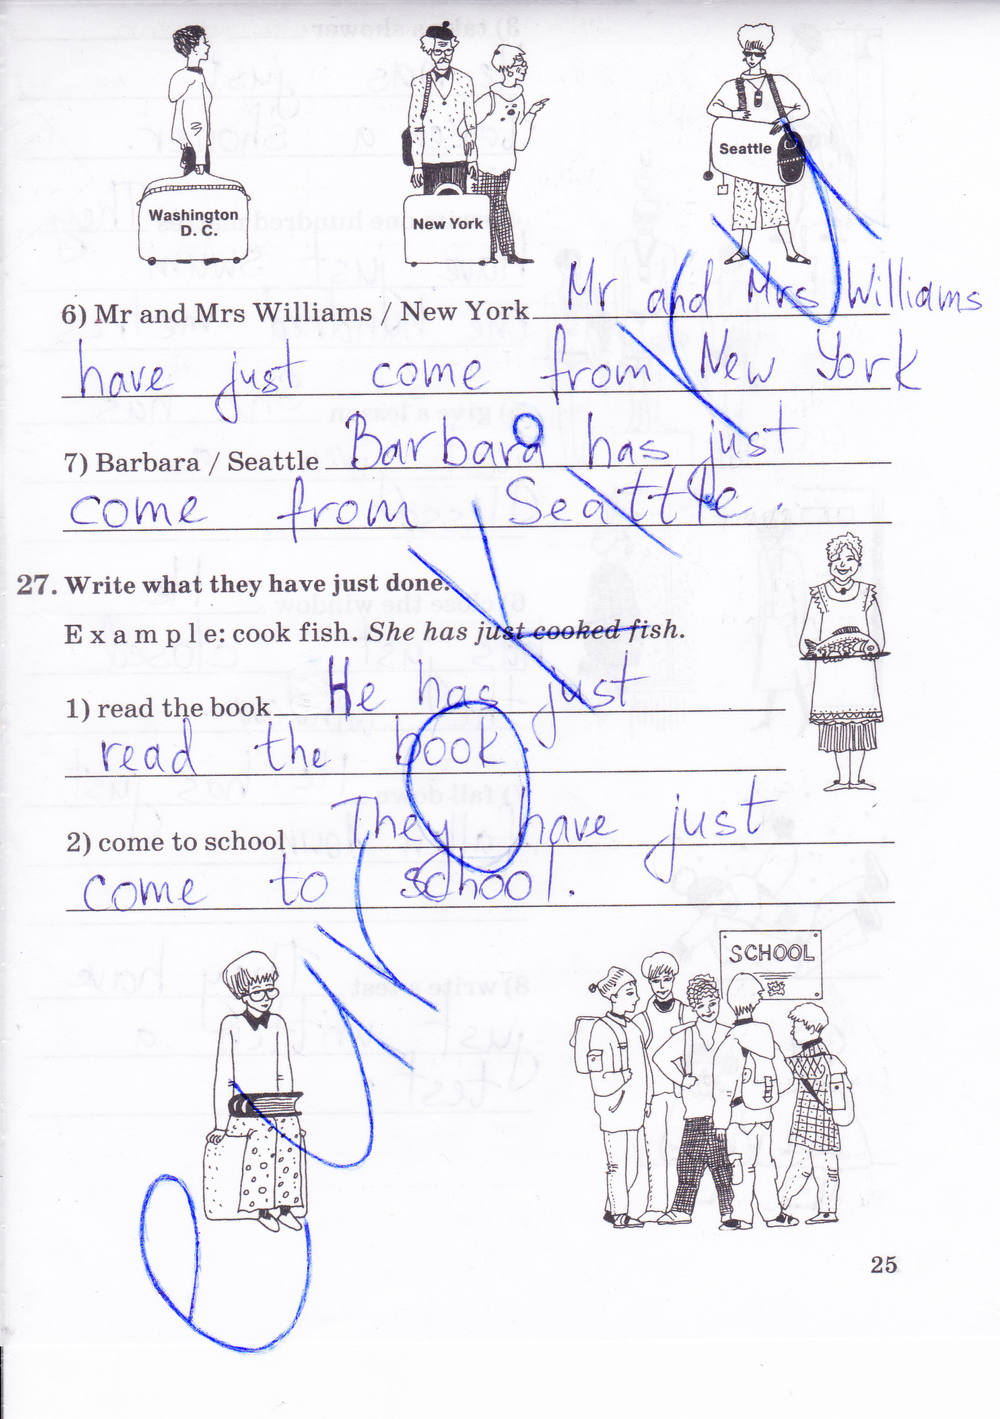 Washington
D. C.
New York
Seattle
6) Mr and Mrs Williams / New York Mr and Mrs Williams
have just come from New York
7) Barbara / Seattle Barbara has just
come from Seattle.
27. Write what they have just done.
Example: cook fish. She has just cooked fish.
1) read the book He has just
read the book.
2) come to school They have just
come to school.
SCHOOL
25